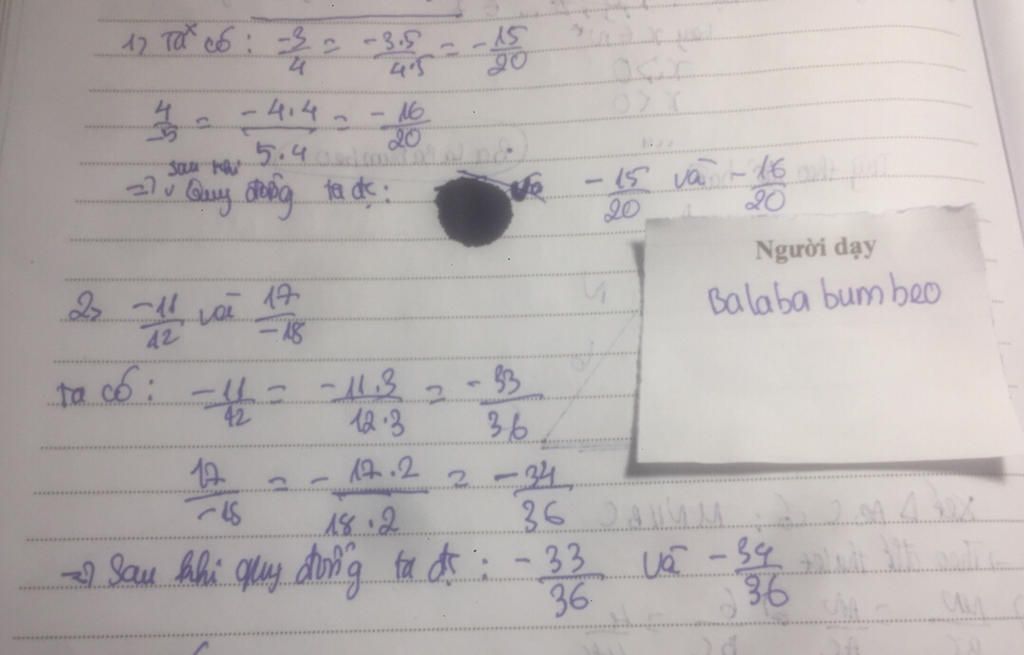 1) Ta có : -3/4 = -3.5/4.5 = -15/20
4/-5 = -4.4/5.4 = -16/20
sau khi
=> Quy đồng ta đc : và -15/20 và -16/20
Người dạy
Balaba bumbeo
2) -11/12 và 17/-18
Ta có : -11/12 = -11.3/12.3 = -33/36
17/-18 = -17.2/18.2 = -34/36
=> Sau khi quy đồng ta đc : -33/36 và -34/36